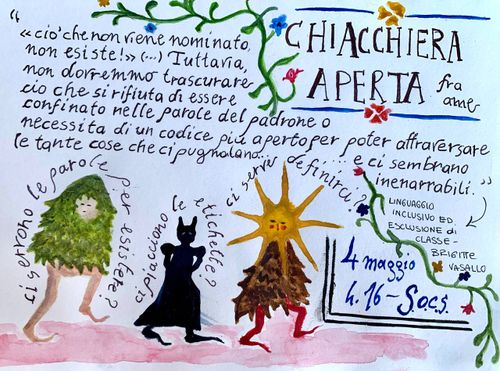 "
«ciò che non viene nominato,
non esiste!» (...) Tuttavia,
non dovremmo trascurare
ciò che si rifiuta di essere
confinato nelle parole del padrone o
necessita di un codice più aperto per poter attraversare
le tante cose che ci pugnolano... e ci sembrano
inenarrabili."
CHIACCHIERA
APERTA fra
ci servono le parole per esistere?
ci piacciono le etichette?
ci serve definirci?
LINGUAGGIO
INCLUSIVO ED
ESCLUSIONE DI
CLASSE -
BRIGITTE
VASALLO
4 maggio
h. 16 - S.o.c.s.